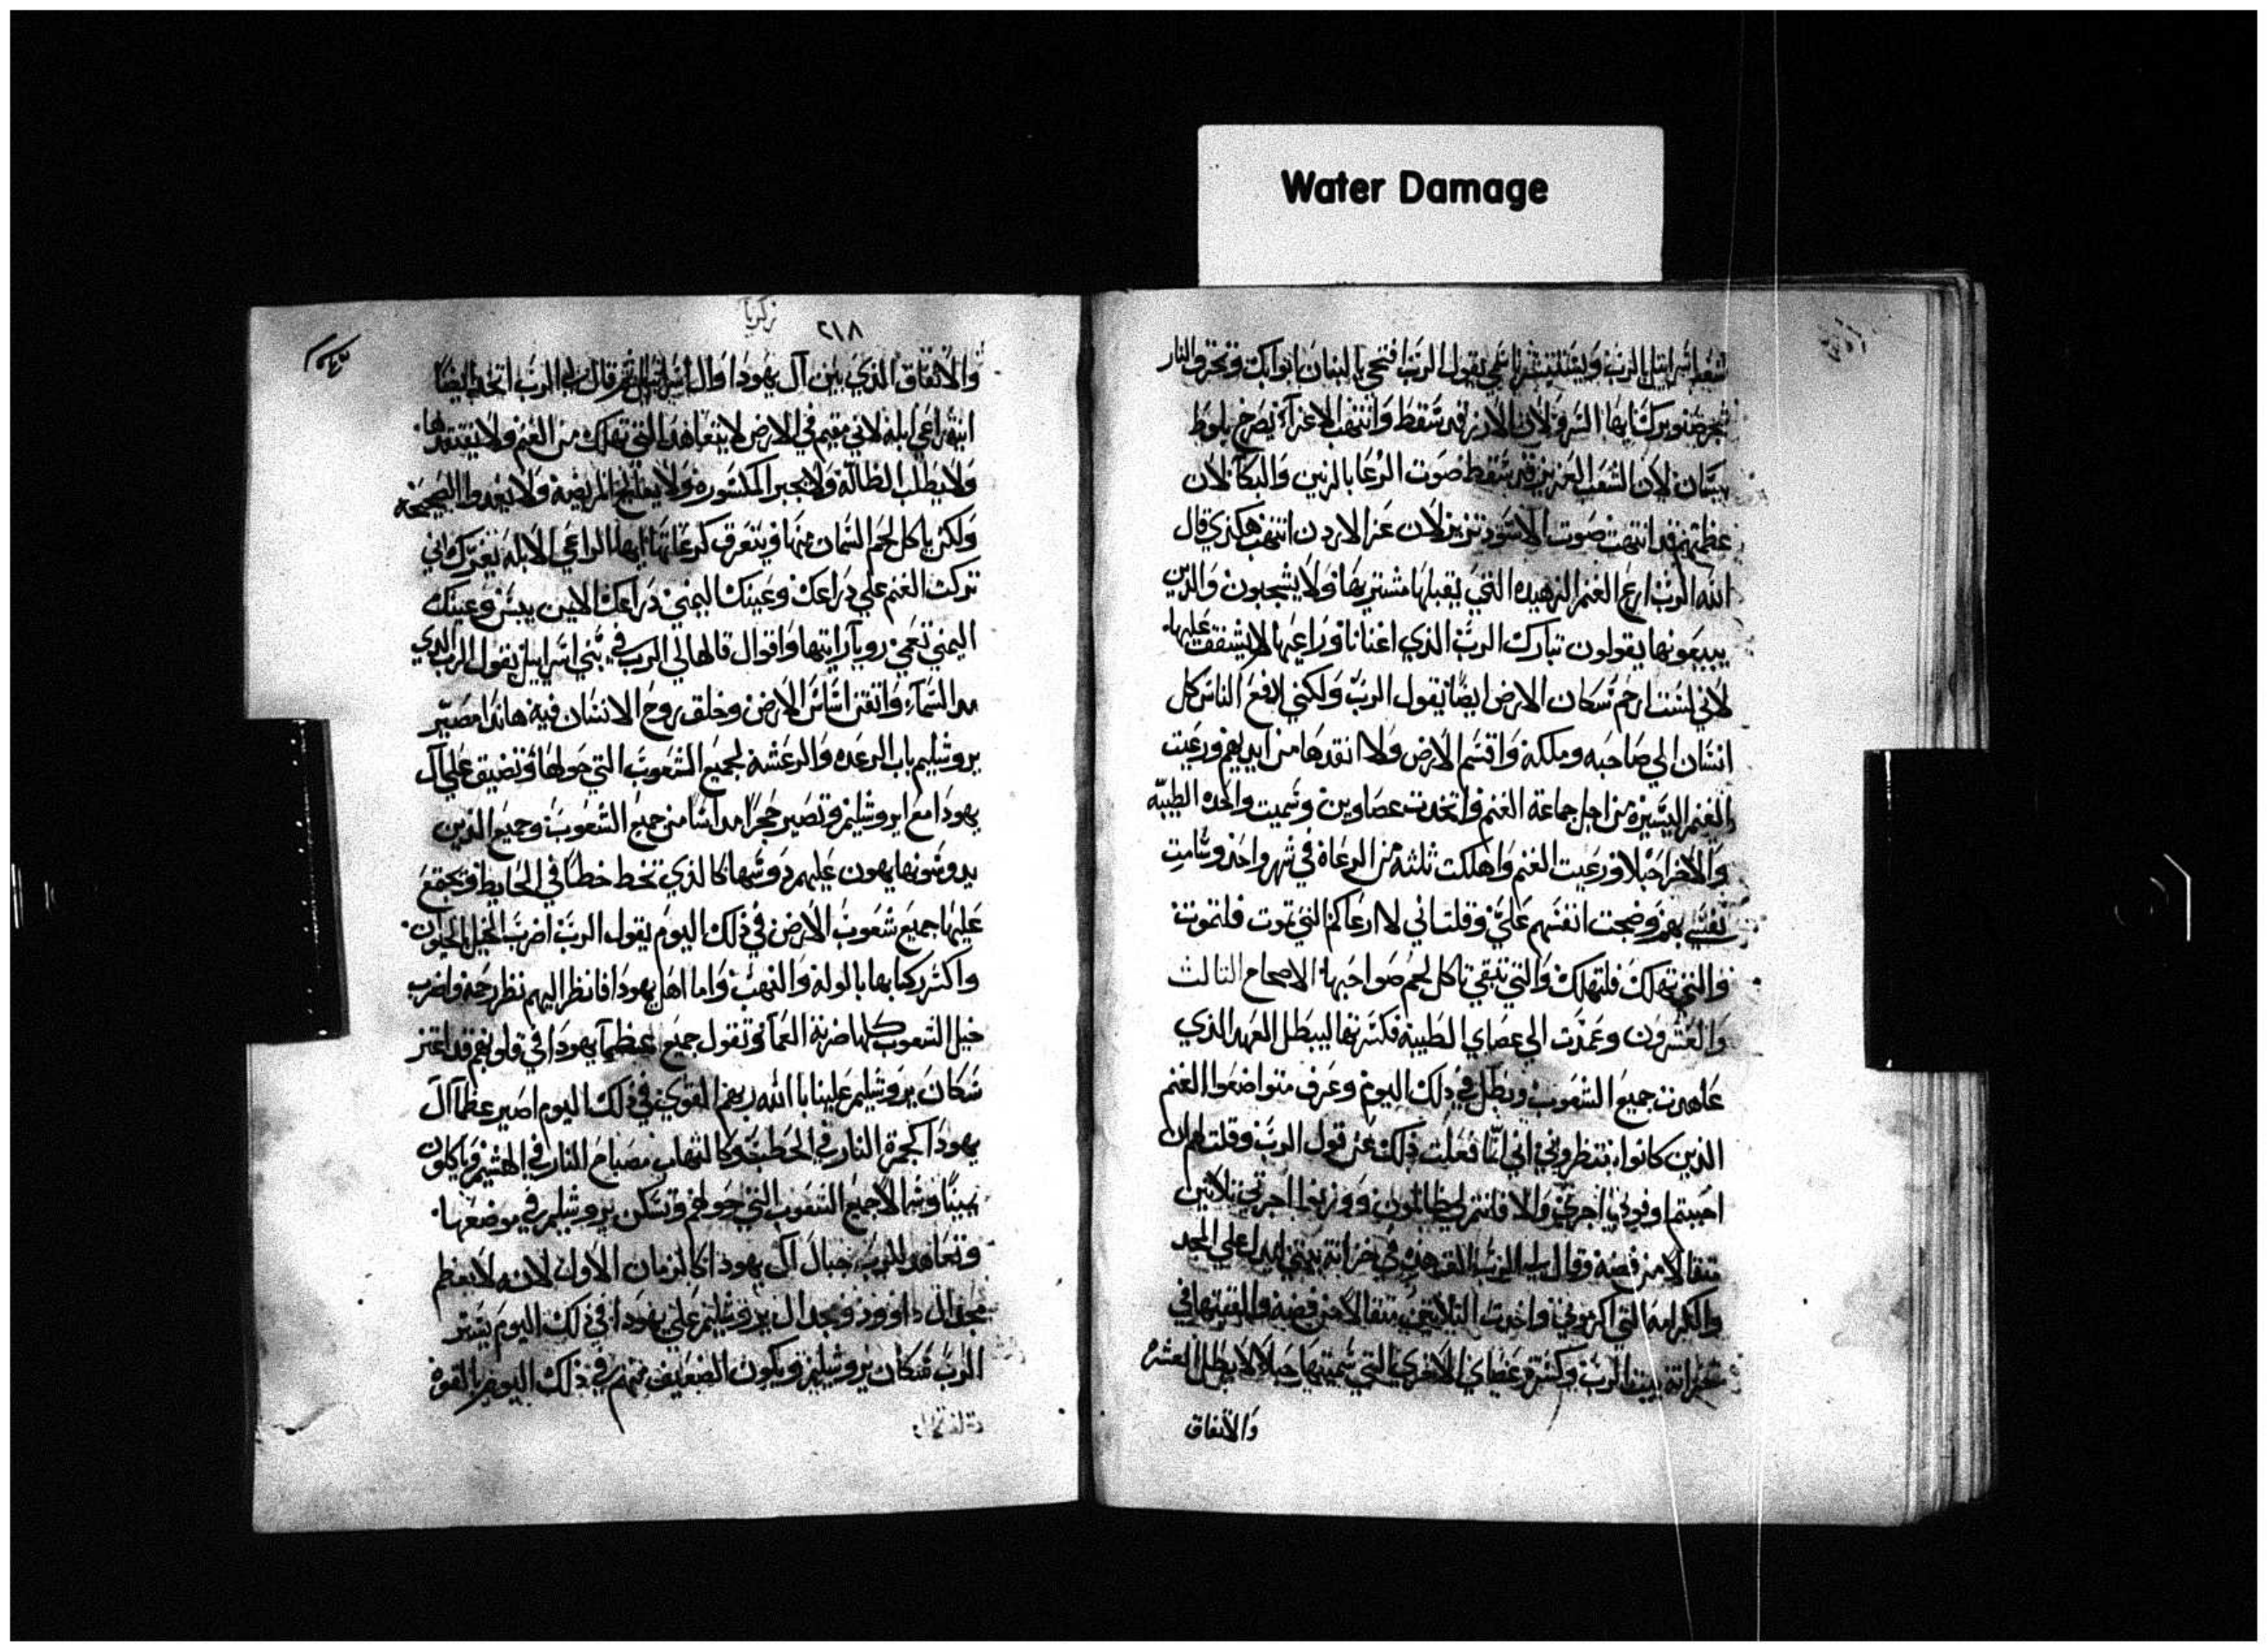 Water Damage
شعب اسرايل بالرب ويستلينشر باسمي يقول الرب افتحي يا لبنان ابوابك وتحرق النار
شجر صنوبرك ايها السرو لان الارز قد سقط وانتهب الاعزآء يصرخ بلوط
بيسان لان الشعب العزيز قد سقط صوت الرعا بالرنين والبكآ لان
عظمتهم قد انتهت صوت الاسود تزير لان عز الاردن انتهب هكذي قال
الله الرب ارع الغنم الزهيده التي يقبلها مشتريها ولا يشجبون والذين
يبيعونها يقولون تبارك الرب الذي اغنانا وراعيها لا يشفقت عليها
لاني لست ارحم سكان الارض ايضا يقول الرب ولكني ادفع الناس كل
انسان الي صاحبه وملكه واقسم الارض ولا انقدها من ايديهم ورعيت
الغنم اليسيره من اجل جماعة الغنم واتخدت عصاوين وسميت واحده الطيبه
والاخرا حبلا ورعيت الغنم واهلكت ثلثه من الرعاة في شهر واحد وسامت
نفسي بهم وضجت انفسهم علي وقلت اني لا ارعاكم التي تموت فلتموت
والتي تهلك فلتهلك والتي تبقي تاكل لحم صواحبها الاصحاح الثالث
والعشرون وعمدت الي عصاي الطيبة فكسرتها ليبطل العهد الذي
عاهدت جميع الشعوب وبطل في ذلك اليوم وعرف متواضعوا الغنم
الذين كانوا ينتظروني اني انا فعلت ذلك عن قول الرب وقلت لهم ان
احببتم اوفوني اجرتي والا فانتم لي ظالمون ووزنوا اجرتي ثلاثين
مثقالا من فضه وقال لي الرب الق هذه في خزانة بيتي
والكرامه التي اكرموني واخدت الثلاثين مثقالا من فضه والقيتها في
خزانة بيت الرب وكسرت عصاي الاخري التي سميتها حبلا لابطل العشره
والاتفاق
زكريا
٢١٨
والاتفاق الذي بين آل يهودا وال اسرايل ثم قال لي الرب اتخذ ايضا
انية راعي ابله لاني مقيم في الارض لا يتعاهد التي تهلك من الغنم ولا يفتقدها
ولا يطلب الظالة ولا يجبر المكسوره ولا يعالج المريضه ولا يغدوا الصحيحه
ولكن ياكل لحم السمان منها ويتعرق كرعانها ايها الراعي الابله بغيرك اني
تركت الغنم علي ذراعك وعينك اليمني ذراعك الايمن ييبس وعينك
اليمني تعمي رويآ رايتها واقوال قالها لي الرب في بني اسرايل يقول الرب الدي
مد السمآء واتقن اساس الارض وخلق روح الانسان فيه هاندا مصير
يروشليم باب الرعده والرعشه لجميع الشعوب التي حولها وتضيق علي آل
يهودا مع ايروشليم وتصير حجرا مداسا من جميع الشعوب وجميع الذين
يدوسونها يهون عليهم دوسها كالذي تخط خطا في الحايط وتجتمع
عليها جميع شعوب الارض في ذلك اليوم يقول الرب اضرب الخيل
واكثر ركابها بالوله والنهب واما اهل يهودا فانظر اليهم نظر رحمة واضرب
خيل الشعوب كلها ضربة العمآ وتقول جميع عظمآ يهودا في قلوبهم قد اعتز
سكان يروشليم علينا بالله ربهم القوي في ذلك اليوم اصير عظمآ آل
يهودا كجمرة النار في الحطب وكالتهاب مصباح النار في الهشيم وياكلون
يمينا وشمالا جميع الشعوب التي حولهم وتسكن يروشليم في موضعها
وتعاهد الرب جبال آل يهودا كالزمان الاول لانه لا يعظم
مجد ال داوود ومجد ال يروشليم علي يهودا في ذلك اليوم يستر
الرب سكان يروشليم ويكون الضعيف منهم في ذلك اليوم بالقوة